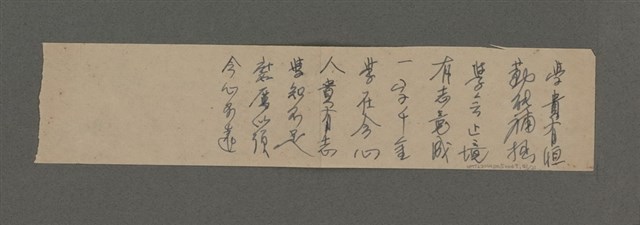 學貴有恒
勤能補拙
學無止境
有志竟成
一字千金
業在今心
人貴有志
學知不足
今心不遠